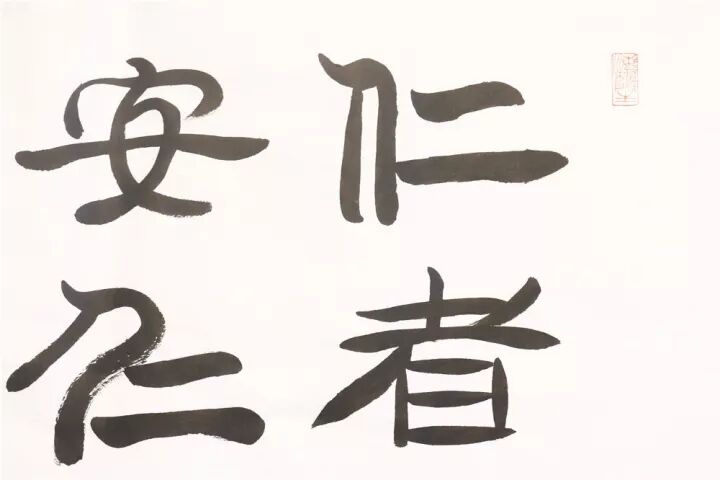 仁者
安仁